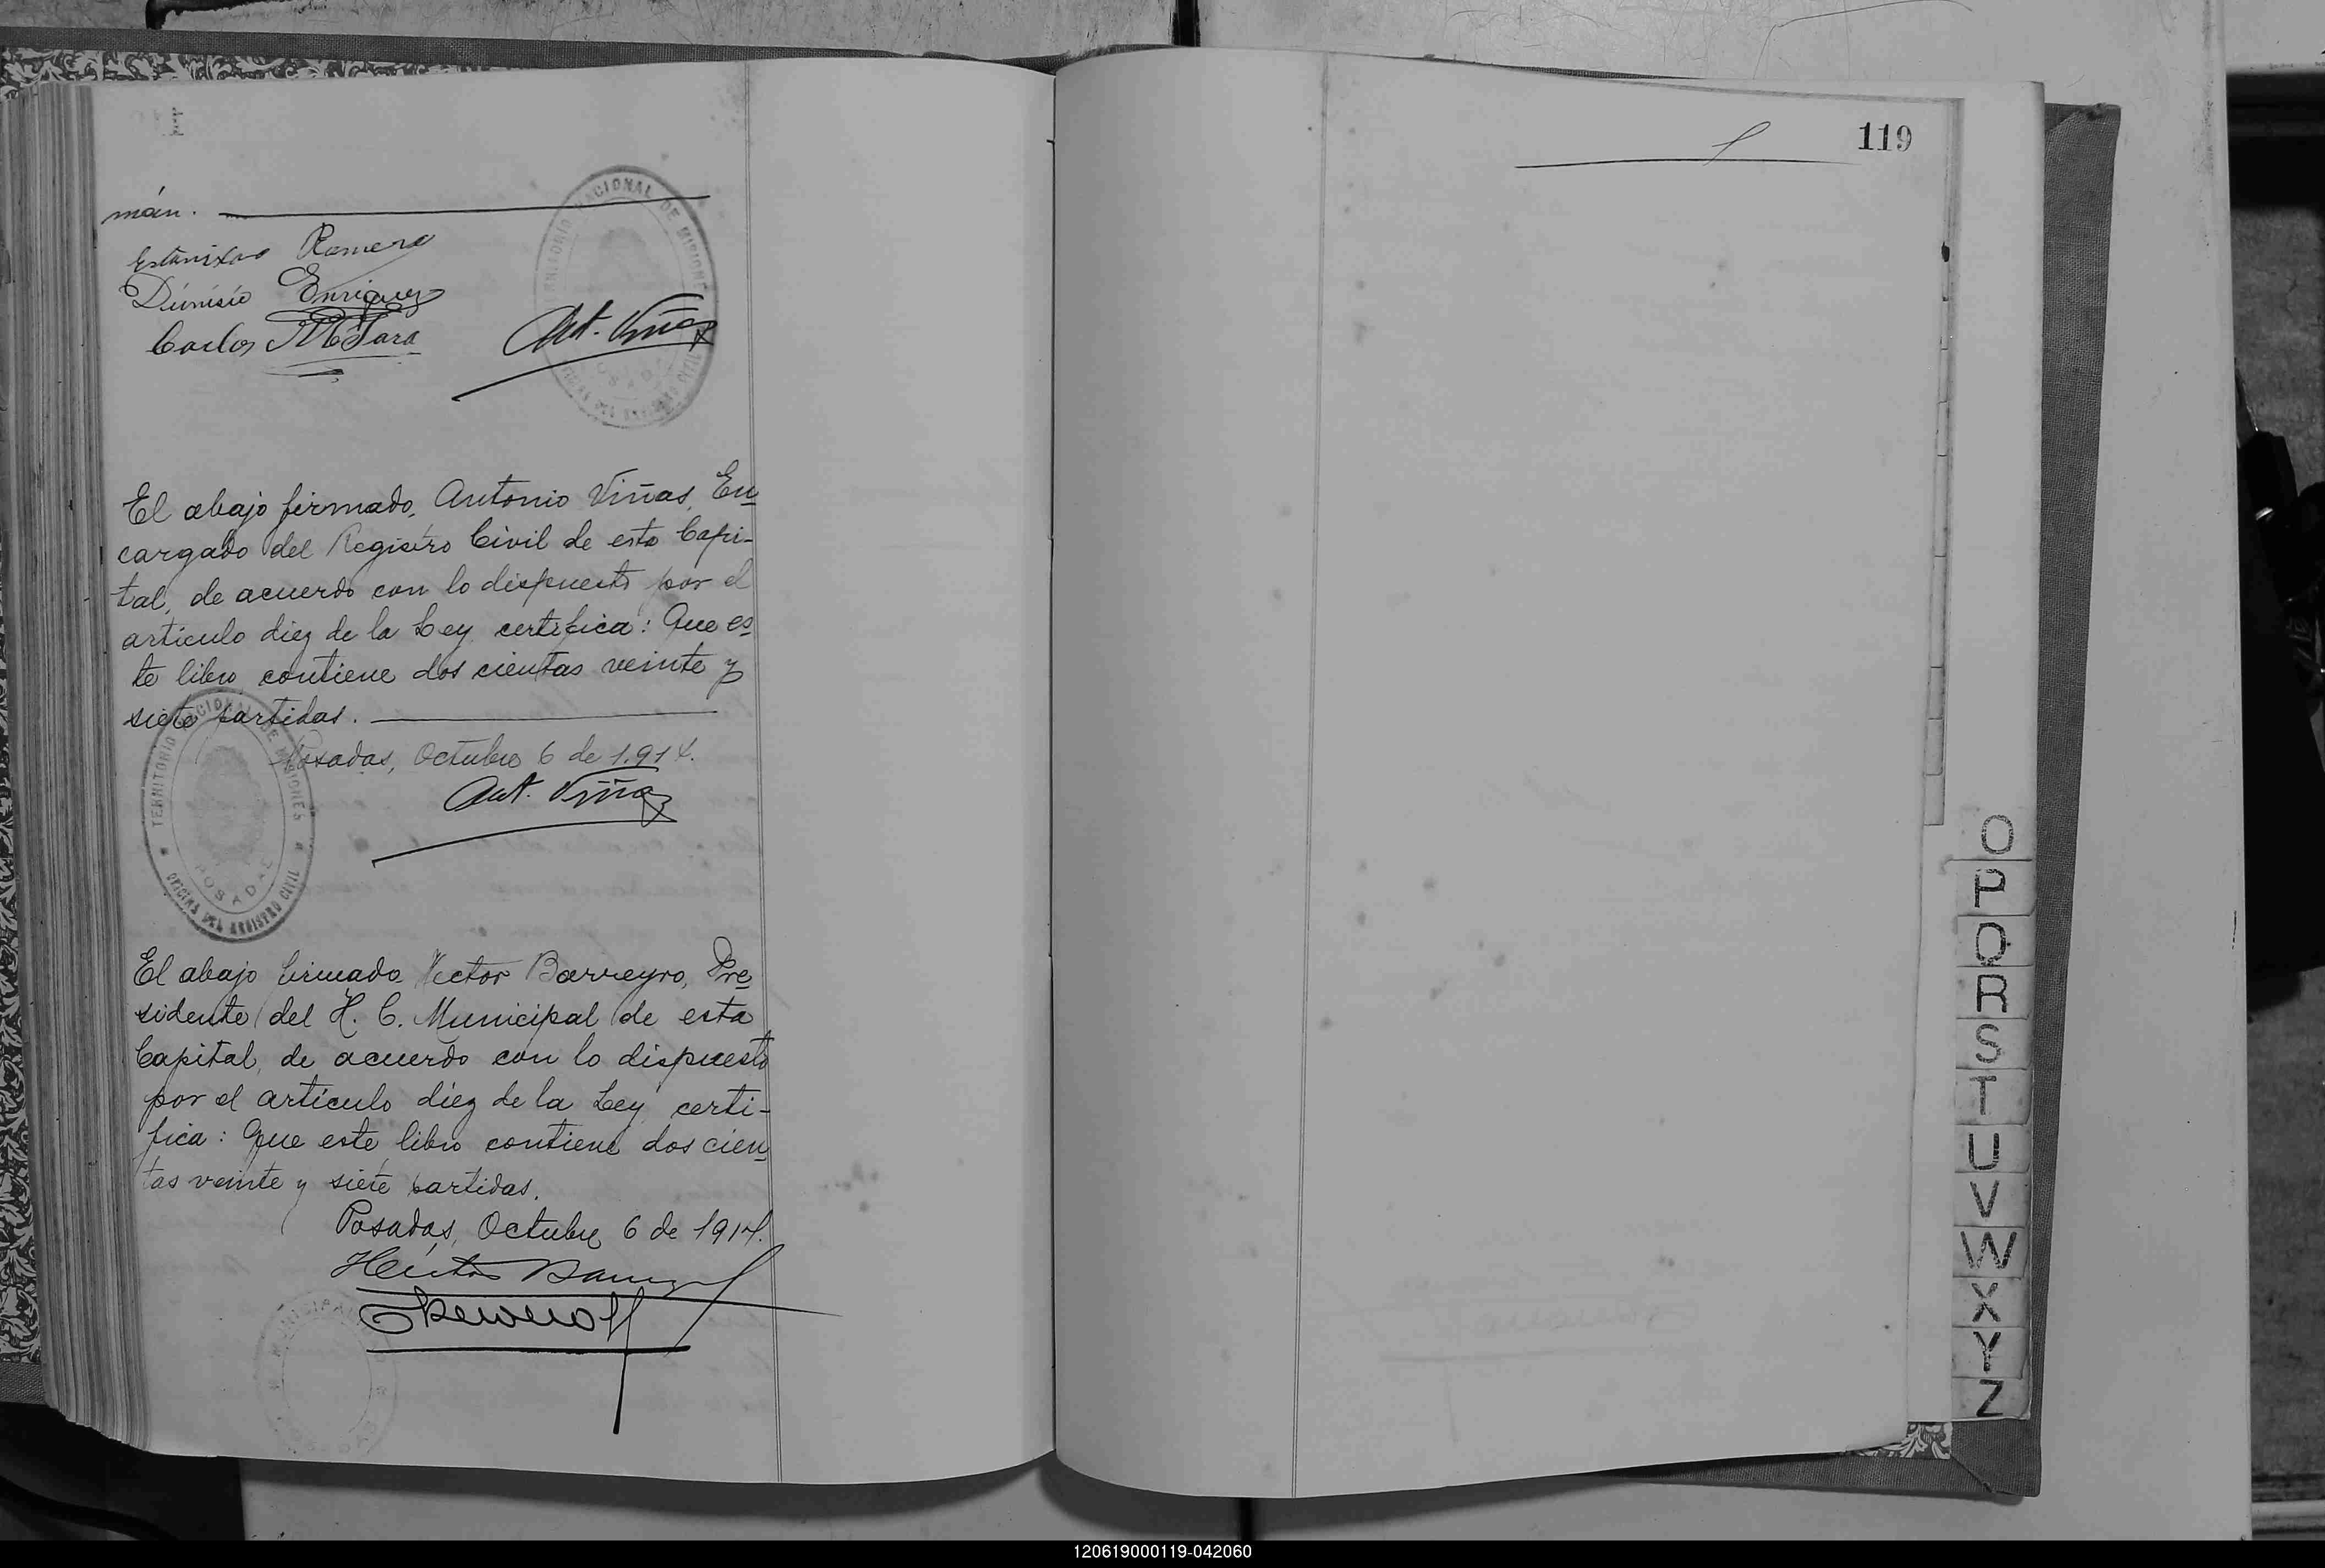 mán.
Estanislao Romero
Dionisio Enriquez
Carlos M Jara
Ant. Viñas
TERRITORIO NACIONAL DE MISIONES
POSADAS
OFICINA DEL REGISTRO CIVIL
El abajo firmado, Antonio Viñas, En-
cargado del Registro Civil de esta Capi-
tal, de acuerdo con lo dispuesto por el
articulo diez de la Ley, certifica: Que es-
te libro contiene dos cientas veinte y
siete partidas.
Posadas, Octubre 6 de 1.914.
Ant. Viñas
TERRITORIO NACIONAL DE MISIONES
POSADAS
OFICINA DEL REGISTRO CIVIL
El abajo firmado Hector Barreyro, Pre-
sidente del H. C. Municipal de esta
Capital, de acuerdo con lo dispuesto
por el articulo diez de la Ley certi-
fica: Que este libro contiene dos cien-
tas veinte y siete partidas.
Posadas, Octubre 6 de 1914.
Hector Barreyro
119
O
P
Q
R
S
T
U
V
W
X
Y
Z
120619000119-042060